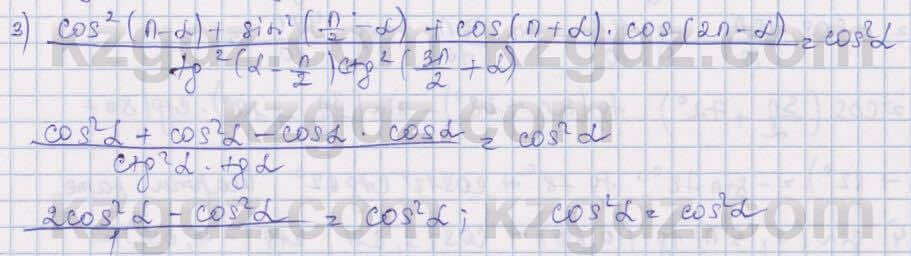 3) (cos²(π-α) + sin²(π/2 - α) + cos(π+α)·cos(2π-α)) / (tg²(α - π/2) ctg²(3π/2 + α)) = cos²α
(cos²α + cos²α - cosα · cosα) / (ctg²α · tgα) = cos²α
(2cos²α - cos²α) / 1 = cos²α; cos²α = cos²α
kzgdz.com